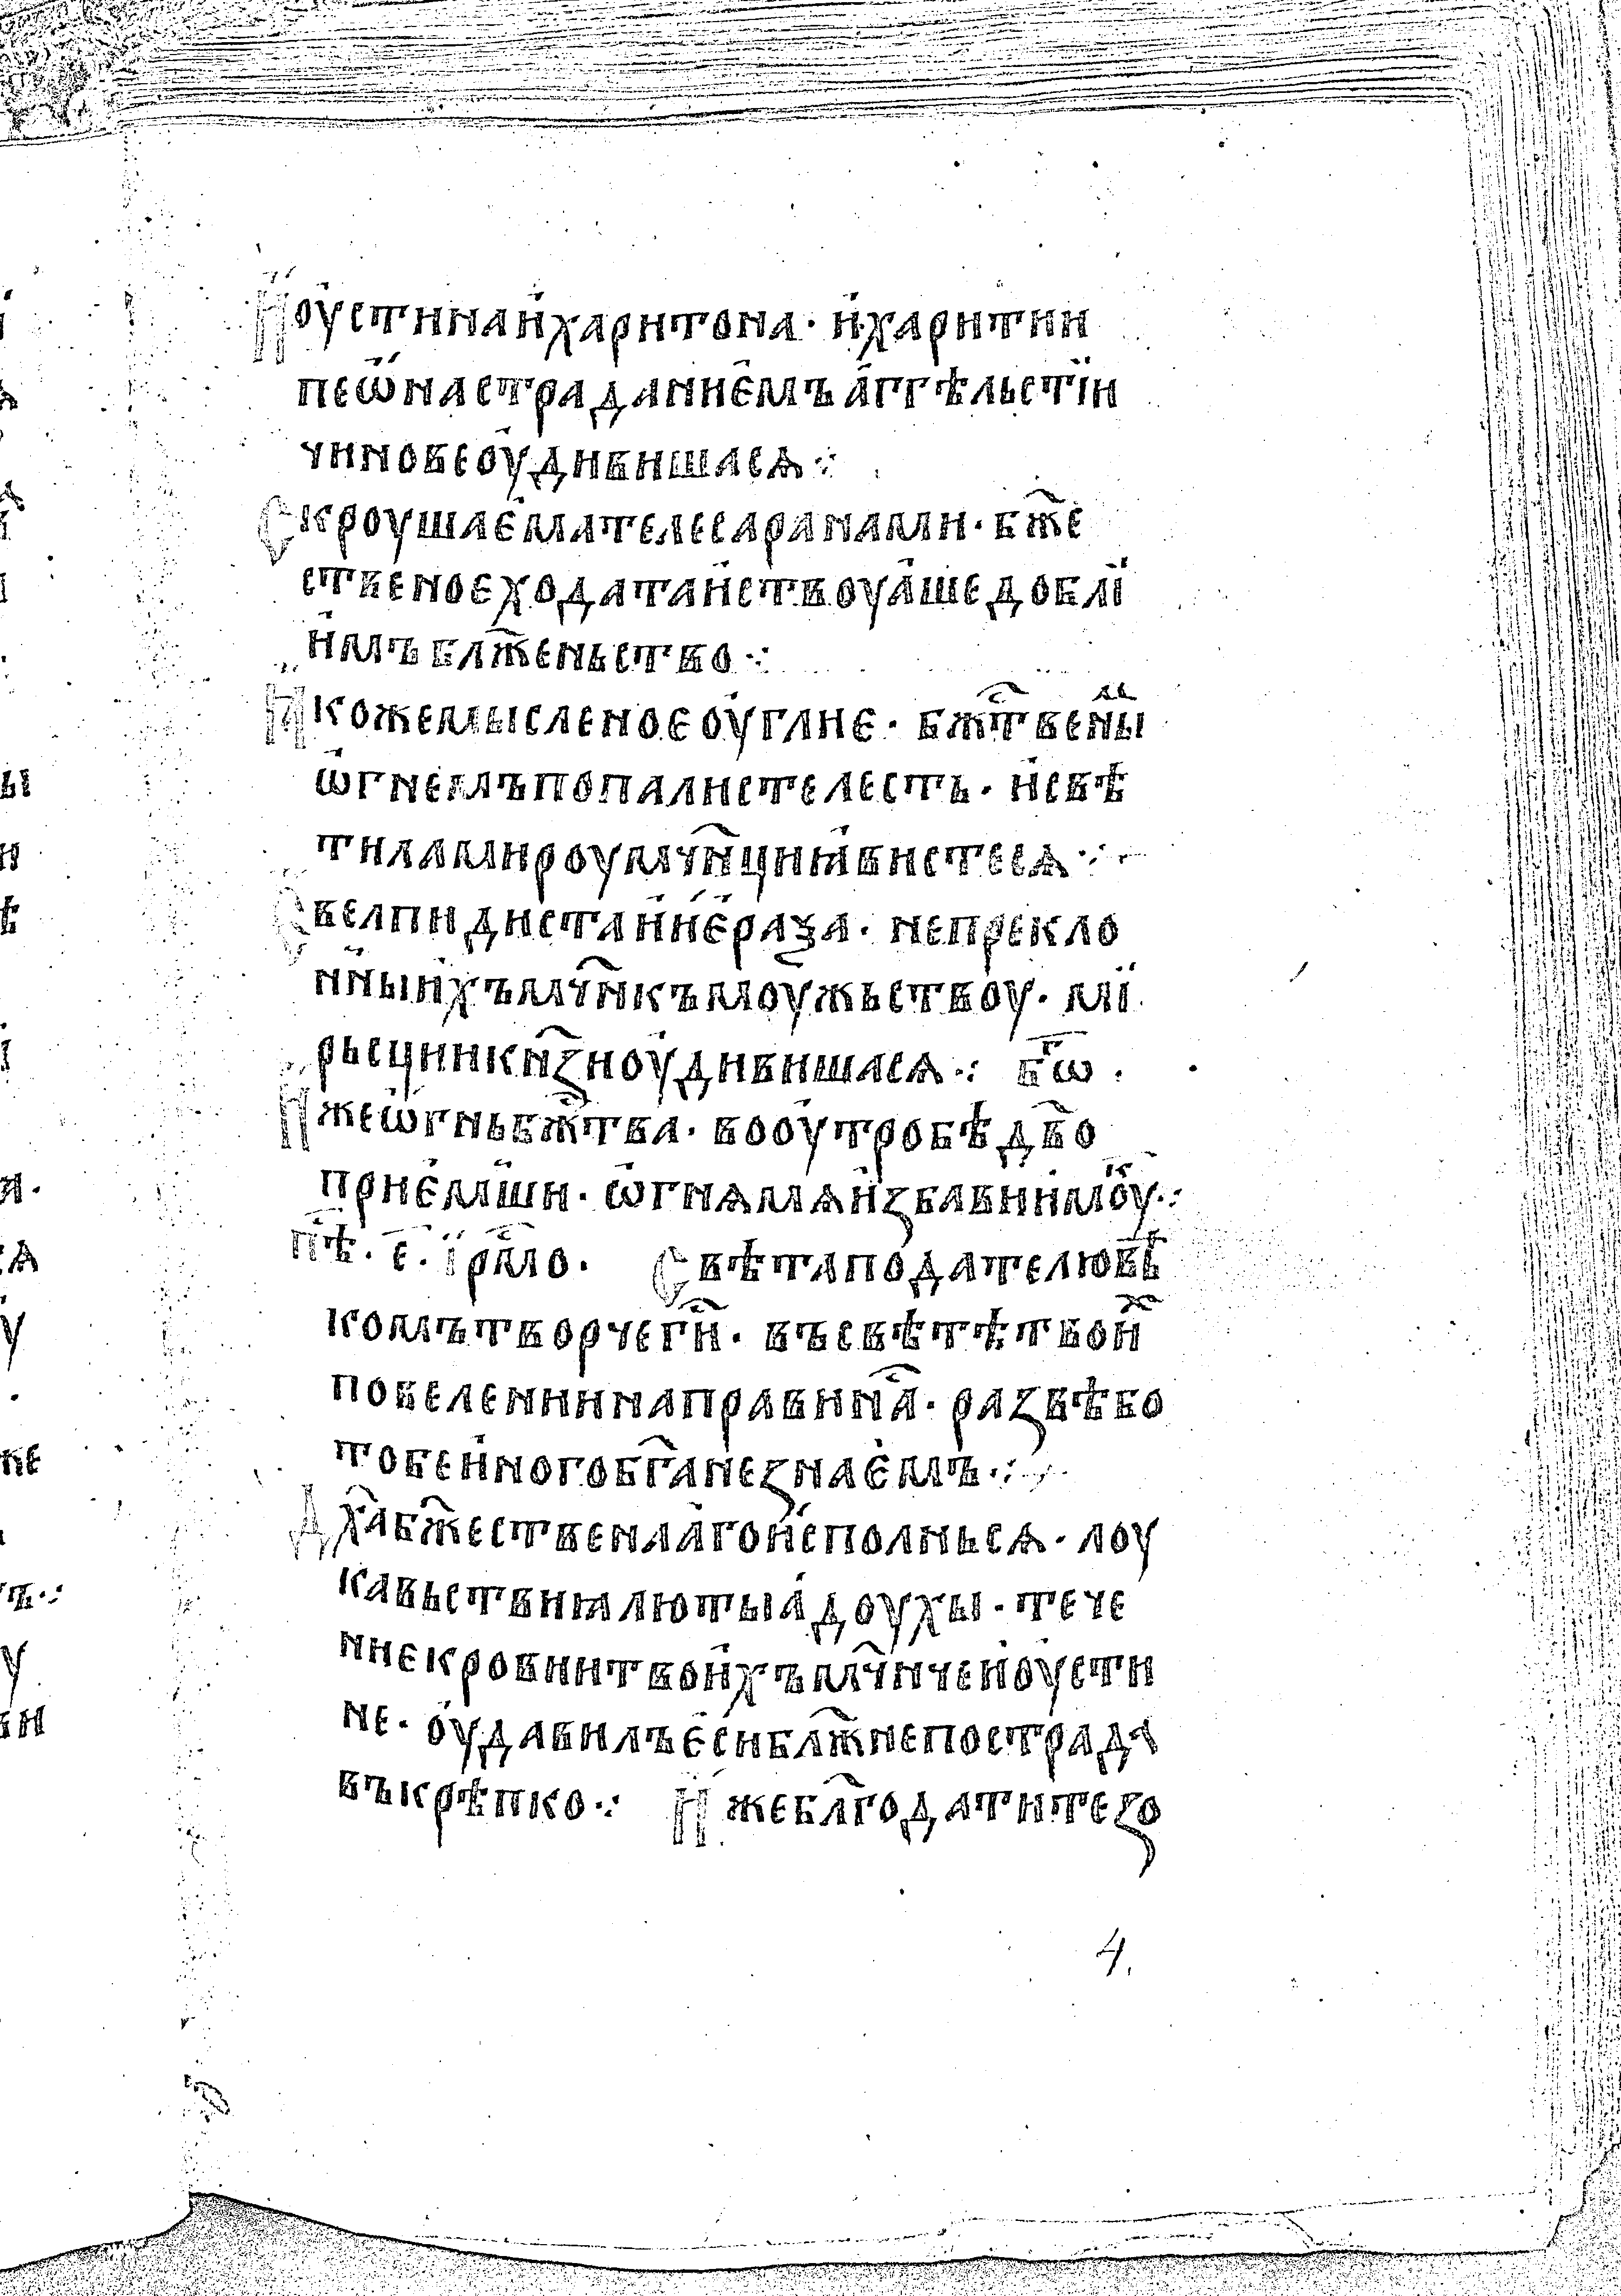 Иоустина и҆харитона · и҆харитии
пеѡ҆на страданиемъ а҆гг҃ѣльстїи
чинове оудивишасѧ ⁘
Скроушаѥма телеса ранами · бж҃е
ственоє ходатаиствоуаше доблї
и҆мъ блаж҃еньство ⁘
Ꙗкоже мысленоє оуглиє · бжⷭ҇твены
ѡ҆гнемъ попалисте лесть · и҆свѣ
тила мироу мч҃нци ꙗвистесѧ ⁘
Свелпидиста и҆ иєраѯа · непрекло
нныихъ мч҃нкъ моужьствоу · мї
рьсции кнѧ҃ꙁи оудивишасѧ ⁘ бг҃ѡ ·
Иже ѡ҆гнь бжⷭ҇тва · во оутробѣ дв҃о
приємши · ѡ҆гнѧ мѧ иꙁбави и моукⷦ ⁘
пѣⷭ · є҃ · їрмⷭ҇о · Свѣта подателю вѣ
комъ творче гⷭ҇и · въсвѣтѣ твоиⷯ
повелении направи наⷭ · раꙁвѣ бо
тобе иного бг҃а не ꙁнаємъ ⁘
Дх҃а бж҃ественлаго исполньсѧ · лоу
кавьствиꙗ лютыꙗ доухы · тече
ниє кровии твоихъ мч҃нче иоусти
не · оудавилъ єси блаж҃не пострада
въ крѣпко ⁘ Иже бл҃годати теꙁо
4.